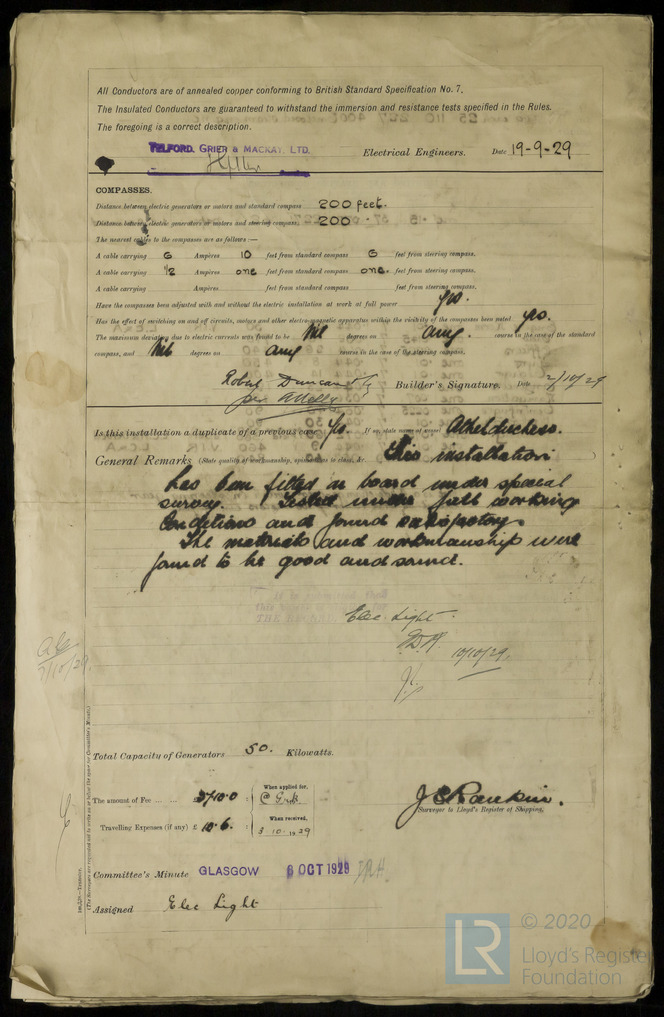 All Conductors are of annealed copper conforming to British Standard Specification No. 7.
The Insulated Conductors are guaranteed to withstand the immersion and resistance tests specified in the Rules.
The foregoing is a correct description.
TELFORD, GRIER & MACKAY, LTD. Electrical Engineers. Date 19-9-29
COMPASSES.
Distance between electric generators or motors and standard compass 200 feet.
Distance between electric generators or motors and steering compass 200
The nearest cables to the compasses are as follows:—
A cable carrying 6 Ampires 10 feet from standard compass 6 feet from steering compass.
A cable carrying 1/2 Ampires one feet from standard compass one. feet from steering compass.
A cable carrying Ampires feet from standard compass feet from steering compass.
Have the compasses been adjusted with and without the electric installation at work at full power yes.
Has the effect of switching on and off circuits, motors and other electro-magnetic apparatus within the vicinity of the compasses been noted yes.
The maximum deviation due to electric currents was found to be Nil degrees on any. course in the case of the standard
compass, and Nil degrees on any course in the case of the steering compass.
Robert Duncan
Builder's Signature. Date 2/10/29
Is this installation a duplicate of a previous case Yes. If so, state name of vessel Athelduchess.
General Remarks (State quality of workmanship, opinions as to class, &c. This installation
has been fitted on board under special
survey. Tested under full working
conditions and found satisfactory.
The materials and workmanship were
found to be good and sound.
Elec. Light.
10/10/29.
7/10/29.
Total Capacity of Generators 50. Kilowatts.
The amount of Fee ... ... When applied for,
When received,
Travelling Expenses (if any) £ 10.6. 3.10.1929
J C Rankin.
Surveyor to Lloyd's Register of Shipping.
Committee's Minute GLASGOW OCT 1929
Assigned Elec Light
© 2020
LR
Lloyd's Register
Foundation